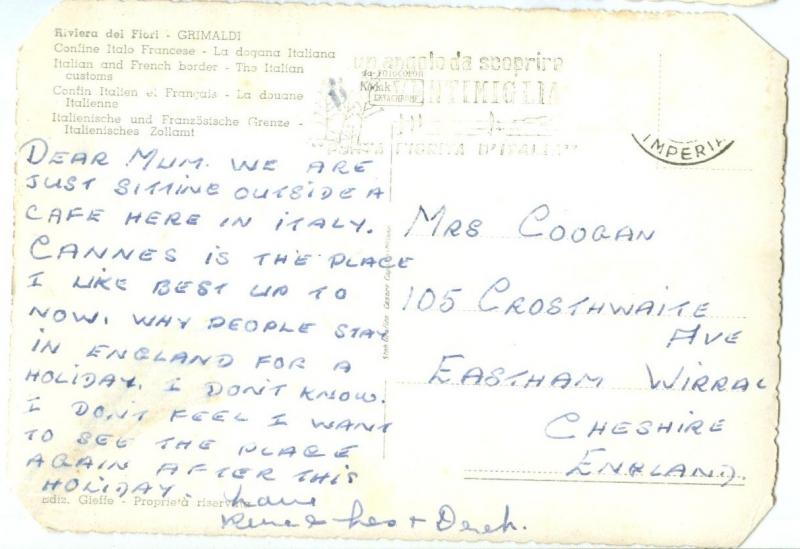 Riviera dei Fiori - GRIMALDI
Confine Italo Francese - La dogana Italiana
Italian and French border - The Italian
customs
Confin Italien et Français - La douane
Italienne
Italienische und Französische Grenze -
Italienisches Zollamt
un angolo da scoprire
da FOTOCOLOR
Kodak
EKTACHROME
VENTIMIGLIA
"PORTA FIORITA D'ITALIA"
IMPERIA
DEAR MUM. WE ARE
JUST SITTING OUTSIDE A
CAFE HERE IN ITALY.
CANNES IS THE PLACE
I LIKE BEST UP TO
NOW. WHY PEOPLE STAY
IN ENGLAND FOR A
HOLIDAY. I DON'T KNOW.
I DON'T FEEL I WANT
TO SEE THE PLACE
AGAIN AFTER THIS
HOLIDAY.
Love
Rene & Les + Derek.
Ediz. Gieffe - Proprietà riservata
MRS COOGAN
105 CROSTHWAITE
AVE
EASTHAM WIRRAL
CHESHIRE
ENGLAND.